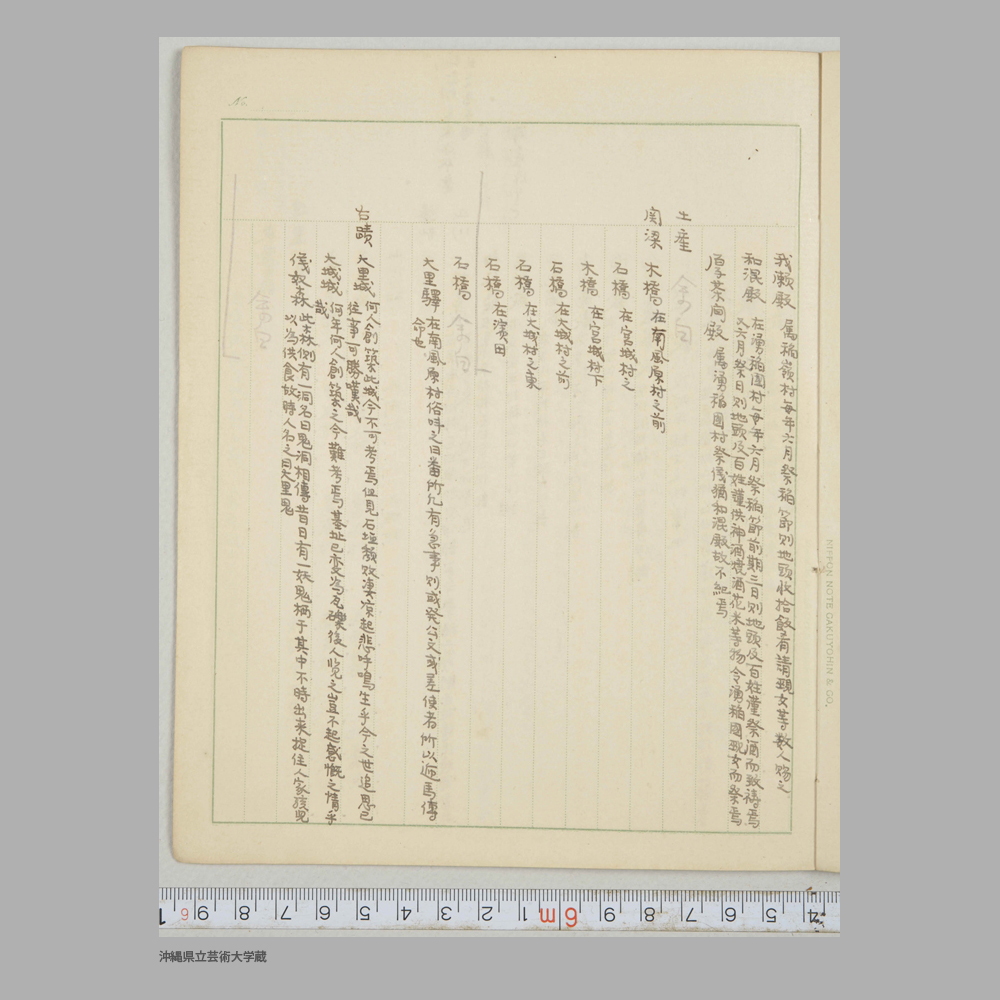 我瀬殿 属稲嶺村毎年六月祭稲節則地頭收拾飯有請現女等数人賜之
和混殿 在湧稲國村毎年六月祭稲節前期三日則地頭及百姓薫祭酒而致祷焉
又六月祭日則地頭及百姓謹供神酒焼酒花米等物令湧稲國現女而祭焉
殿 属湧稲國村祭儀猶和混殿故不紀焉
土産
関梁 木橋 在南風原村之前
石橋 在宮城村之
木橋 在宮城村下
石橋 在大城村之前
石橋 在大城村之東
石橋 在濱田
石橋 余白
大里驛 在南風原村俗呼之曰番所凡有急事則或発文或差使者所以逓馬傳
命也
古蹟 大里城 何人創築此城今不可考焉但見石垣頽敗凄凉起悲呼鳴生乎今之世追思已
往事可勝嘆哉
大城城 何年何人創築之今難考焉基址已変為瓦礫後人悦之豈不起感慨之情乎
哉
儀𡉏森 此森側有一洞名曰鬼洞相傳昔日有一妖鬼栖于其中不時出来捉住人家孩児
以為供食故時人名之曰大里鬼
余白
余白
NIPPON NOTE GAKUYOHIN & CO.
1 6 9 8 7 6 5 4 3 2 1 6m 9 8 7 6 5 4
沖縄県立芸術大学蔵